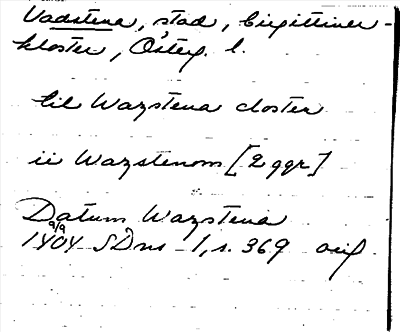 Vadstena, stad, birgittiner-
kloster, Österg. l.
til Wazstena closter
ii Wazstenom [2 ggr]
Datum Wazstena
9/9
1404 SDns 1, s. 369 orig.